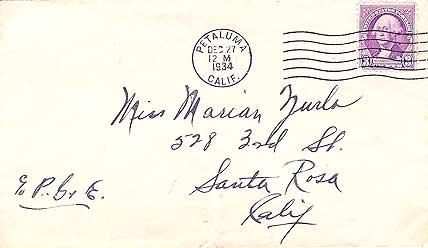 PETALUMA
DEC 27
12 M
1934
CALIF.
3 3
Miss Marian Zurlo
528 3rd St.
Santa Rosa
Calif
℅ P. G. & E.